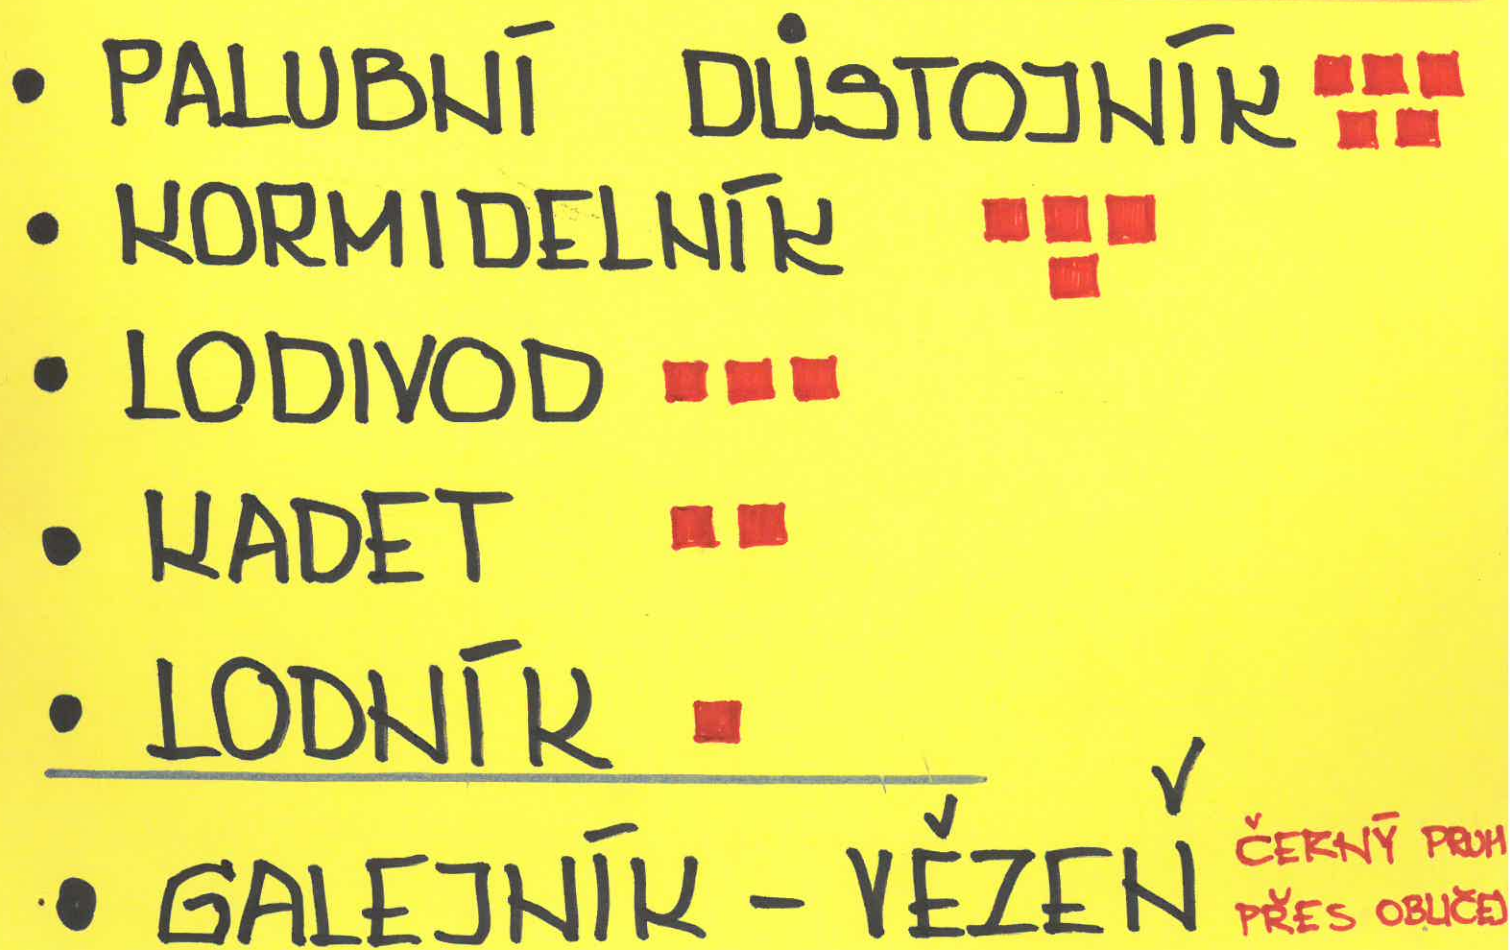 • PALUBNÍ DŮSTOJNÍK
• KORMIDELNÍK
• LODIVOD
• KADET
• LODNÍK
• GALEJNÍK - VĚZEŇ
ČERNÝ PRUH
PŘES OBLIČEJ